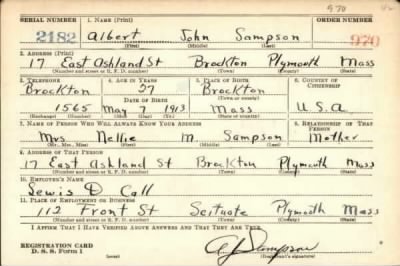 970 42
SERIAL NUMBER 1. NAME (Print) ORDER NUMBER
2182 Albert John Sampson 970
(First) (Middle) (Last)
2. ADDRESS (Print)
17 East Ashland St Brockton Plymouth Mass
(Number and street or R. F. D. number) (Town) (County) (State)
3. TELEPHONE 4. AGE IN YEARS 5. PLACE OF BIRTH 6. COUNTRY OF CITIZENSHIP
Brockton 27 Brockton
DATE OF BIRTH (Town or county)
1565 May 7 1913 Mass U.S.A
(Exchange) (Number) (Mo.) (Day) (Yr.) (State or country)
7. NAME OF PERSON WHO WILL ALWAYS KNOW YOUR ADDRESS 8. RELATIONSHIP OF THAT PERSON
Mrs. Nellie M. Sampson Mother
(Mr., Mrs., Miss) (First) (Middle) (Last)
9. ADDRESS OF THAT PERSON
17 East Ashland St Brockton Plymouth Mass
(Number and street or R. F. D. number) (Town) (County) (State)
10. EMPLOYER'S NAME
Lewis D Call
11. PLACE OF EMPLOYMENT OR BUSINESS
112 Front St Scituate Plymouth Mass
(Number and street or R. F. D. number) (Town) (County) (State)
I AFFIRM THAT I HAVE VERIFIED ABOVE ANSWERS AND THAT THEY ARE TRUE.
REGISTRATION CARD
D. S. S. Form 1 (over) (Registrant's signature)
AJ Sampson